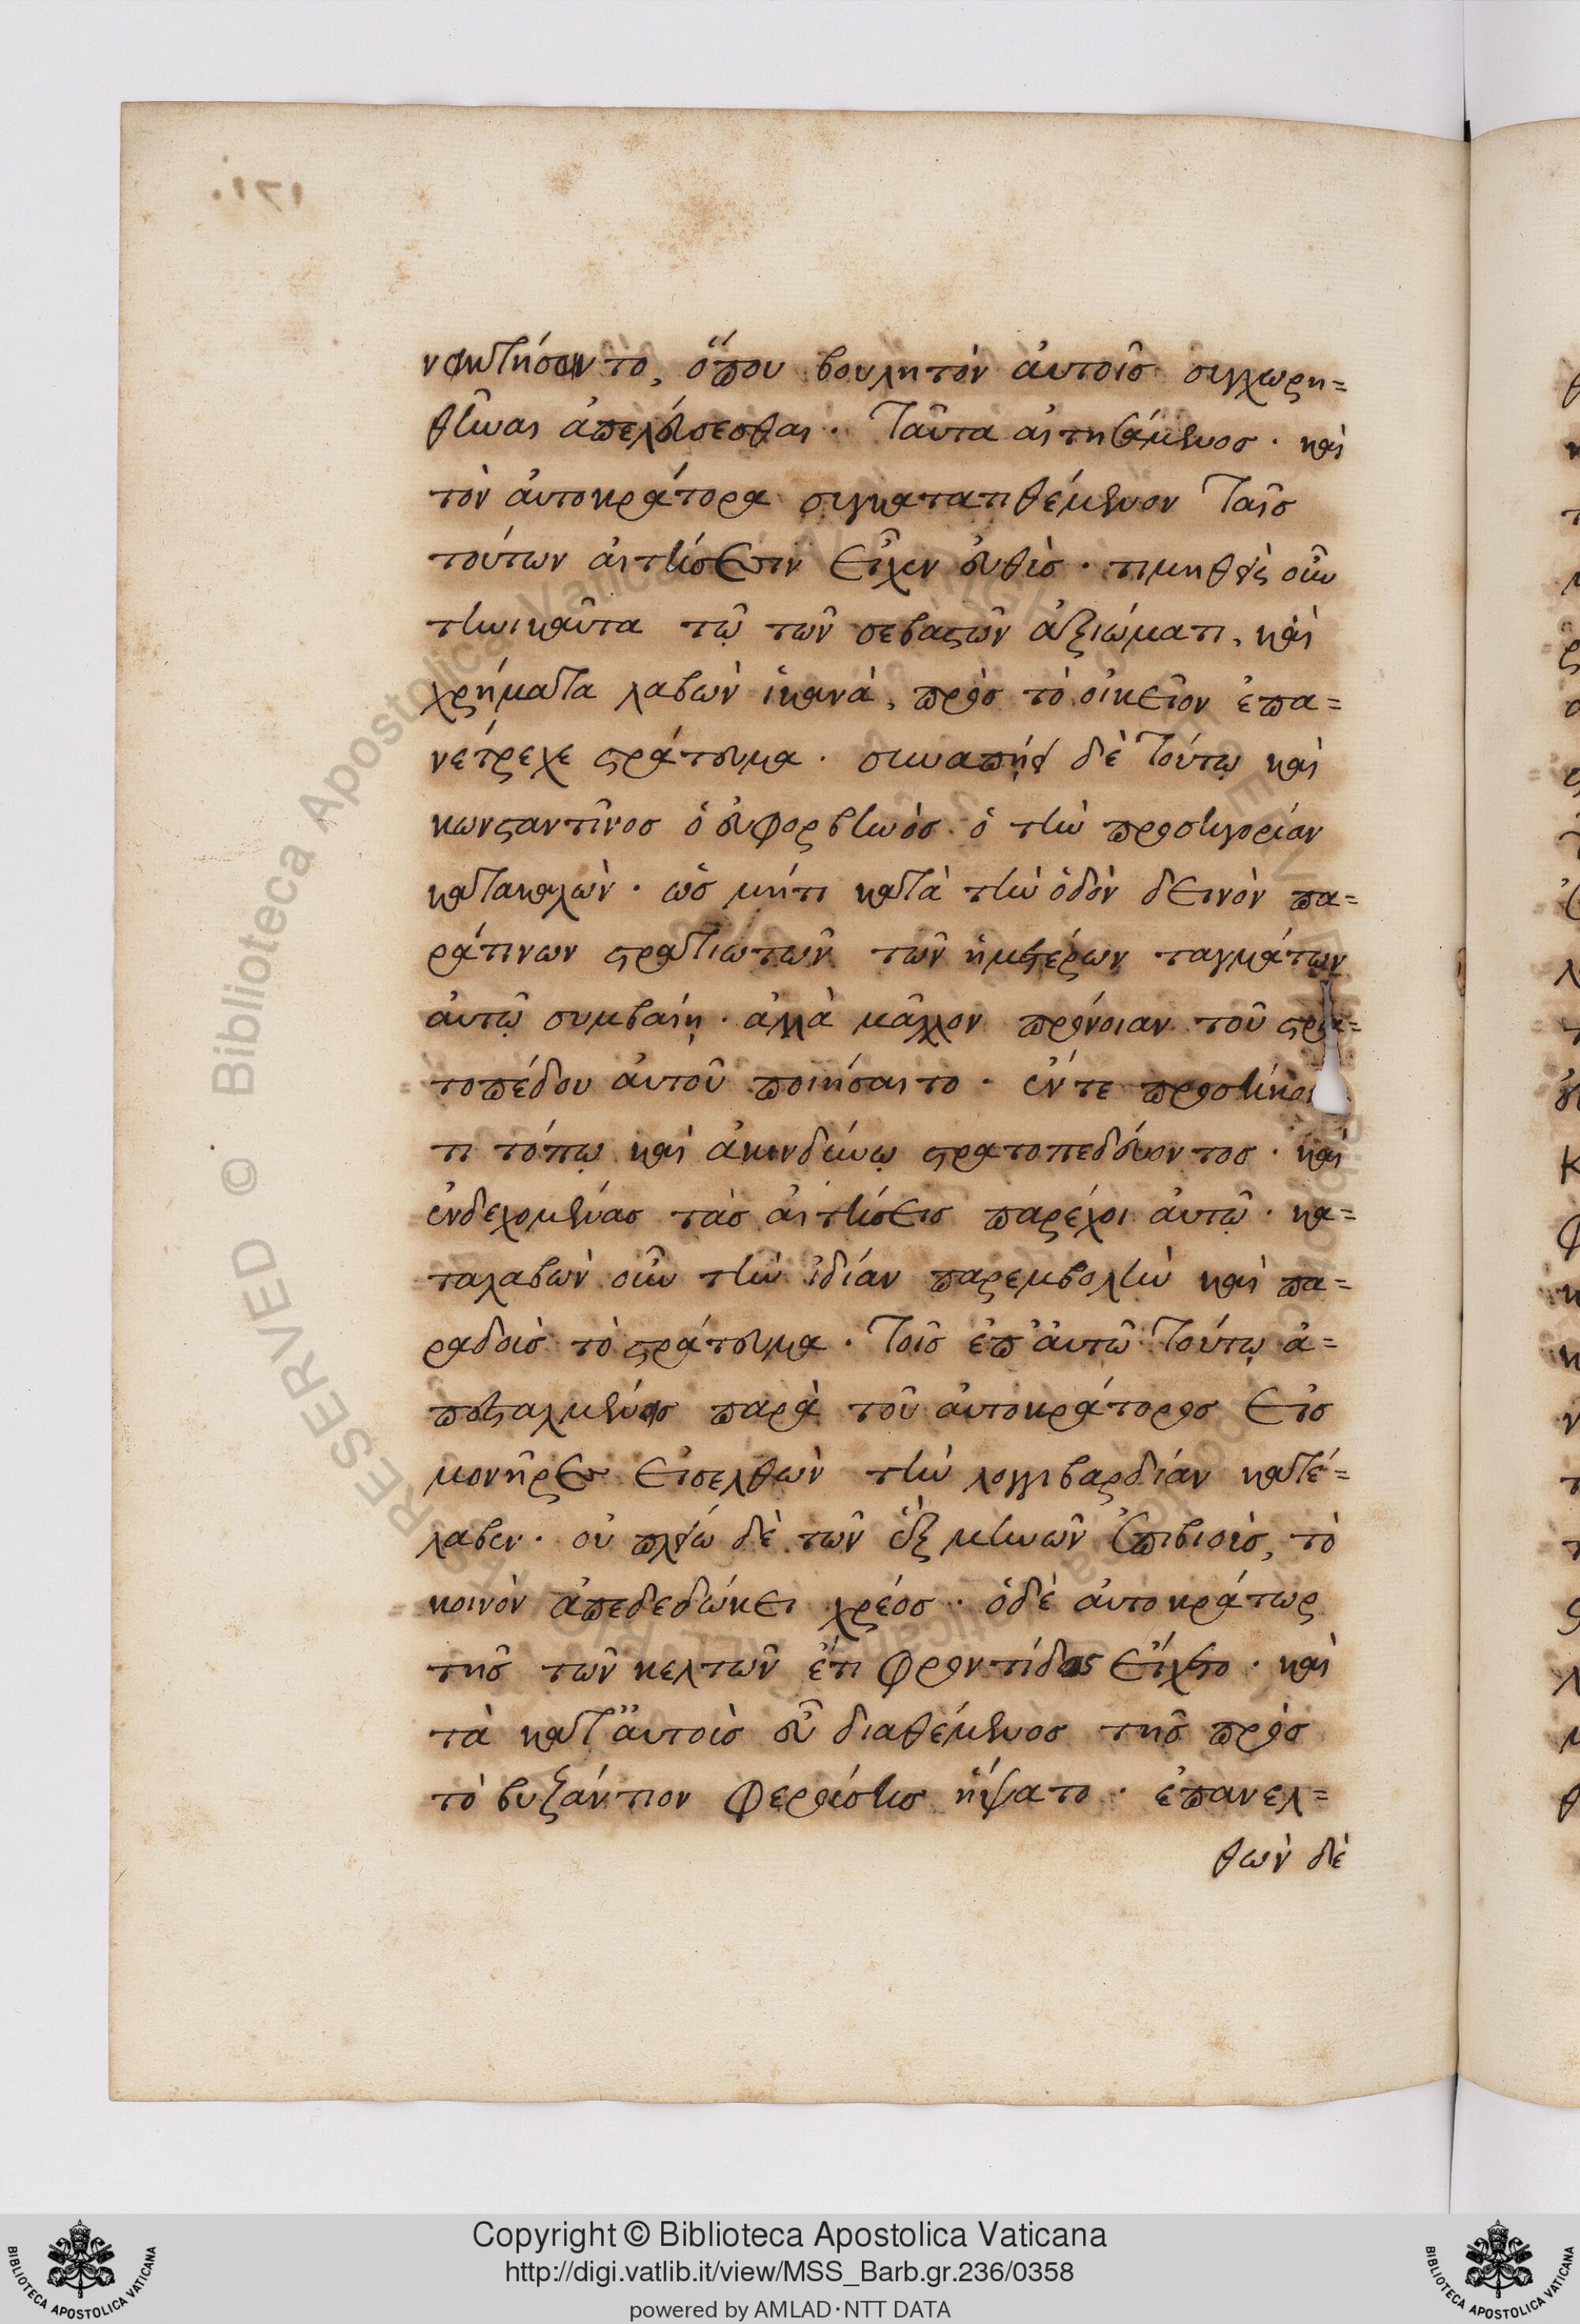 ναντήσαντο, ὅπου βουλητὸν αὐτοῖς συγχωρη=
θῆναι ἀπελεύσεσθαι. Ταῦτα αἰτησάμενος. καὶ
τὸν αὐτοκράτορα συγκατατιθέμενον Ταῖς
τούτων αἰτήσεσιν εἶχεν εὐθὺς. τιμηθεὶς οὖν
τηνικαῦτα τῷ τῶν σεβαστῶν ἀξιώματι, καὶ
χρήματα λαβὼν ἱκανὰ, πρὸς τὸ οἰκεῖον ἐπα=
νέτρεχε στράτευμα. συναπῄει δὲ Τούτῳ καὶ
κωνσταντῖνος ὁ εὐφορβηνὸς ὁ τὴν προσηγορίαν
κατακαλὼν. ὡς μήτι κατὰ τὴν ὁδὸν δεινὸν πα=
ράτινων στρατιωτῶν τῶν ἡμετέρων ταγμάτων
αὐτῷ συμβαίη. ἀλλὰ μᾶλλον πρόνοιαν τοῦ στρα=
τοπέδου αὐτοῦ ποιήσαιτο. ἔν τε προσήκον
τι τόπῳ καὶ ἀκινδύνῳ στρατοπεδεύοντος. καὶ
ἐνδεχομένας τὰς αἰτήσεις παρέχοι αὐτῷ. κα=
ταλαβὼν οὖν τὴν ἰδίαν παρεμβολὴν καὶ πα=
ραδοὺς τὸ στράτευμα. Τοῖς ἐπ' αὐτῷ Τούτῳ ἀ=
ποσταλμένοις παρὰ τοῦ αὐτοκράτορος εἰς
μονῆρες εἰσελθὼν τὴν λογγιβαρδίαν κατέ=
λαβεν. οὐ πλείω δὲ τῶν ἓξ μηνῶν ἐπιβιοὺς, τὸ
κοινὸν ἀπεδεδώκει χρέος. ὁδὲ αὐτοκράτωρ
τῆς τῶν κελτῶν ἔτι φροντίδος εἴχετο. καὶ
τὰ κατ' αὐτοὺς εὖ διαθέμενος τῆς πρὸς
τὸ βυζάντιον φερούσης ἥψατο. ἐπανελ=
θὼν δὲ
Copyright © Biblioteca Apostolica Vaticana
http://digi.vatlib.it/view/MSS_Barb.gr.236/0358
powered by AMLAD·NTT DATA